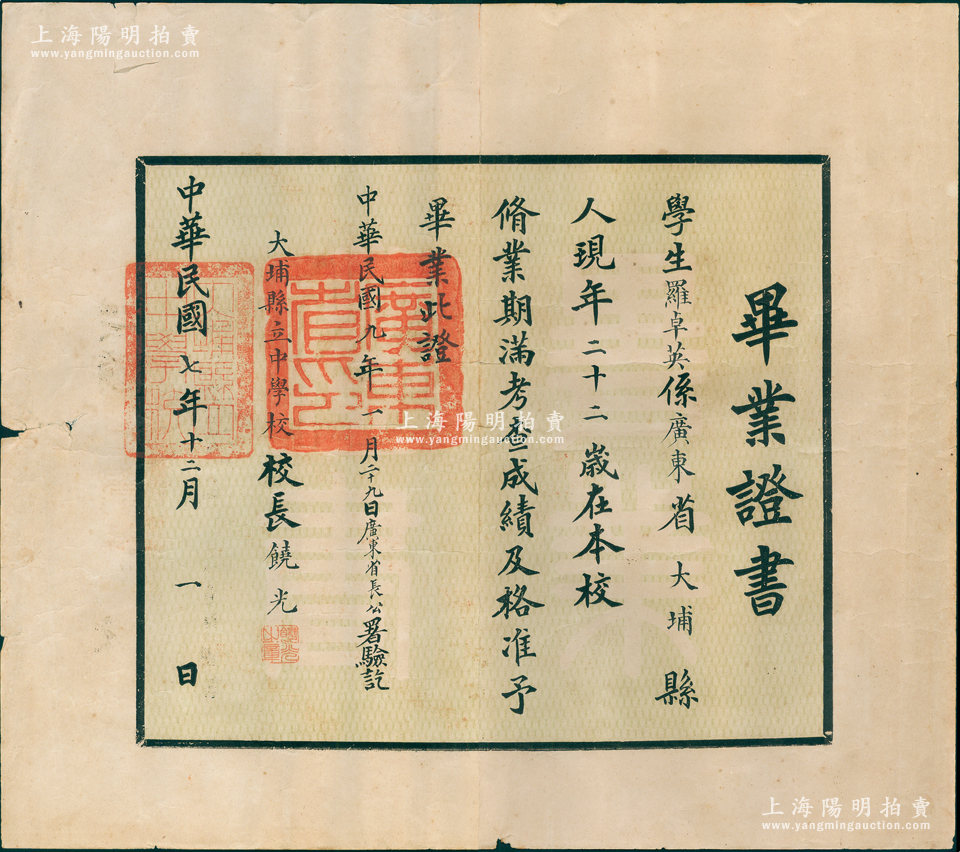 上海陽明拍賣
www.yangmingauction.com
畢業證書
學生羅卓英係廣東省大埔縣
人現年二十二歲在本校
脩業期滿考查成績及格准予
畢業此證
中華民國九年一月二十九日廣東省長公署驗訖
大埔縣立中學校校長饒光
中華民國七年十二月一日
廣東省長之印
上海陽明拍賣
www.yangmingauction.com
上海陽明拍賣
www.yangmingauction.com